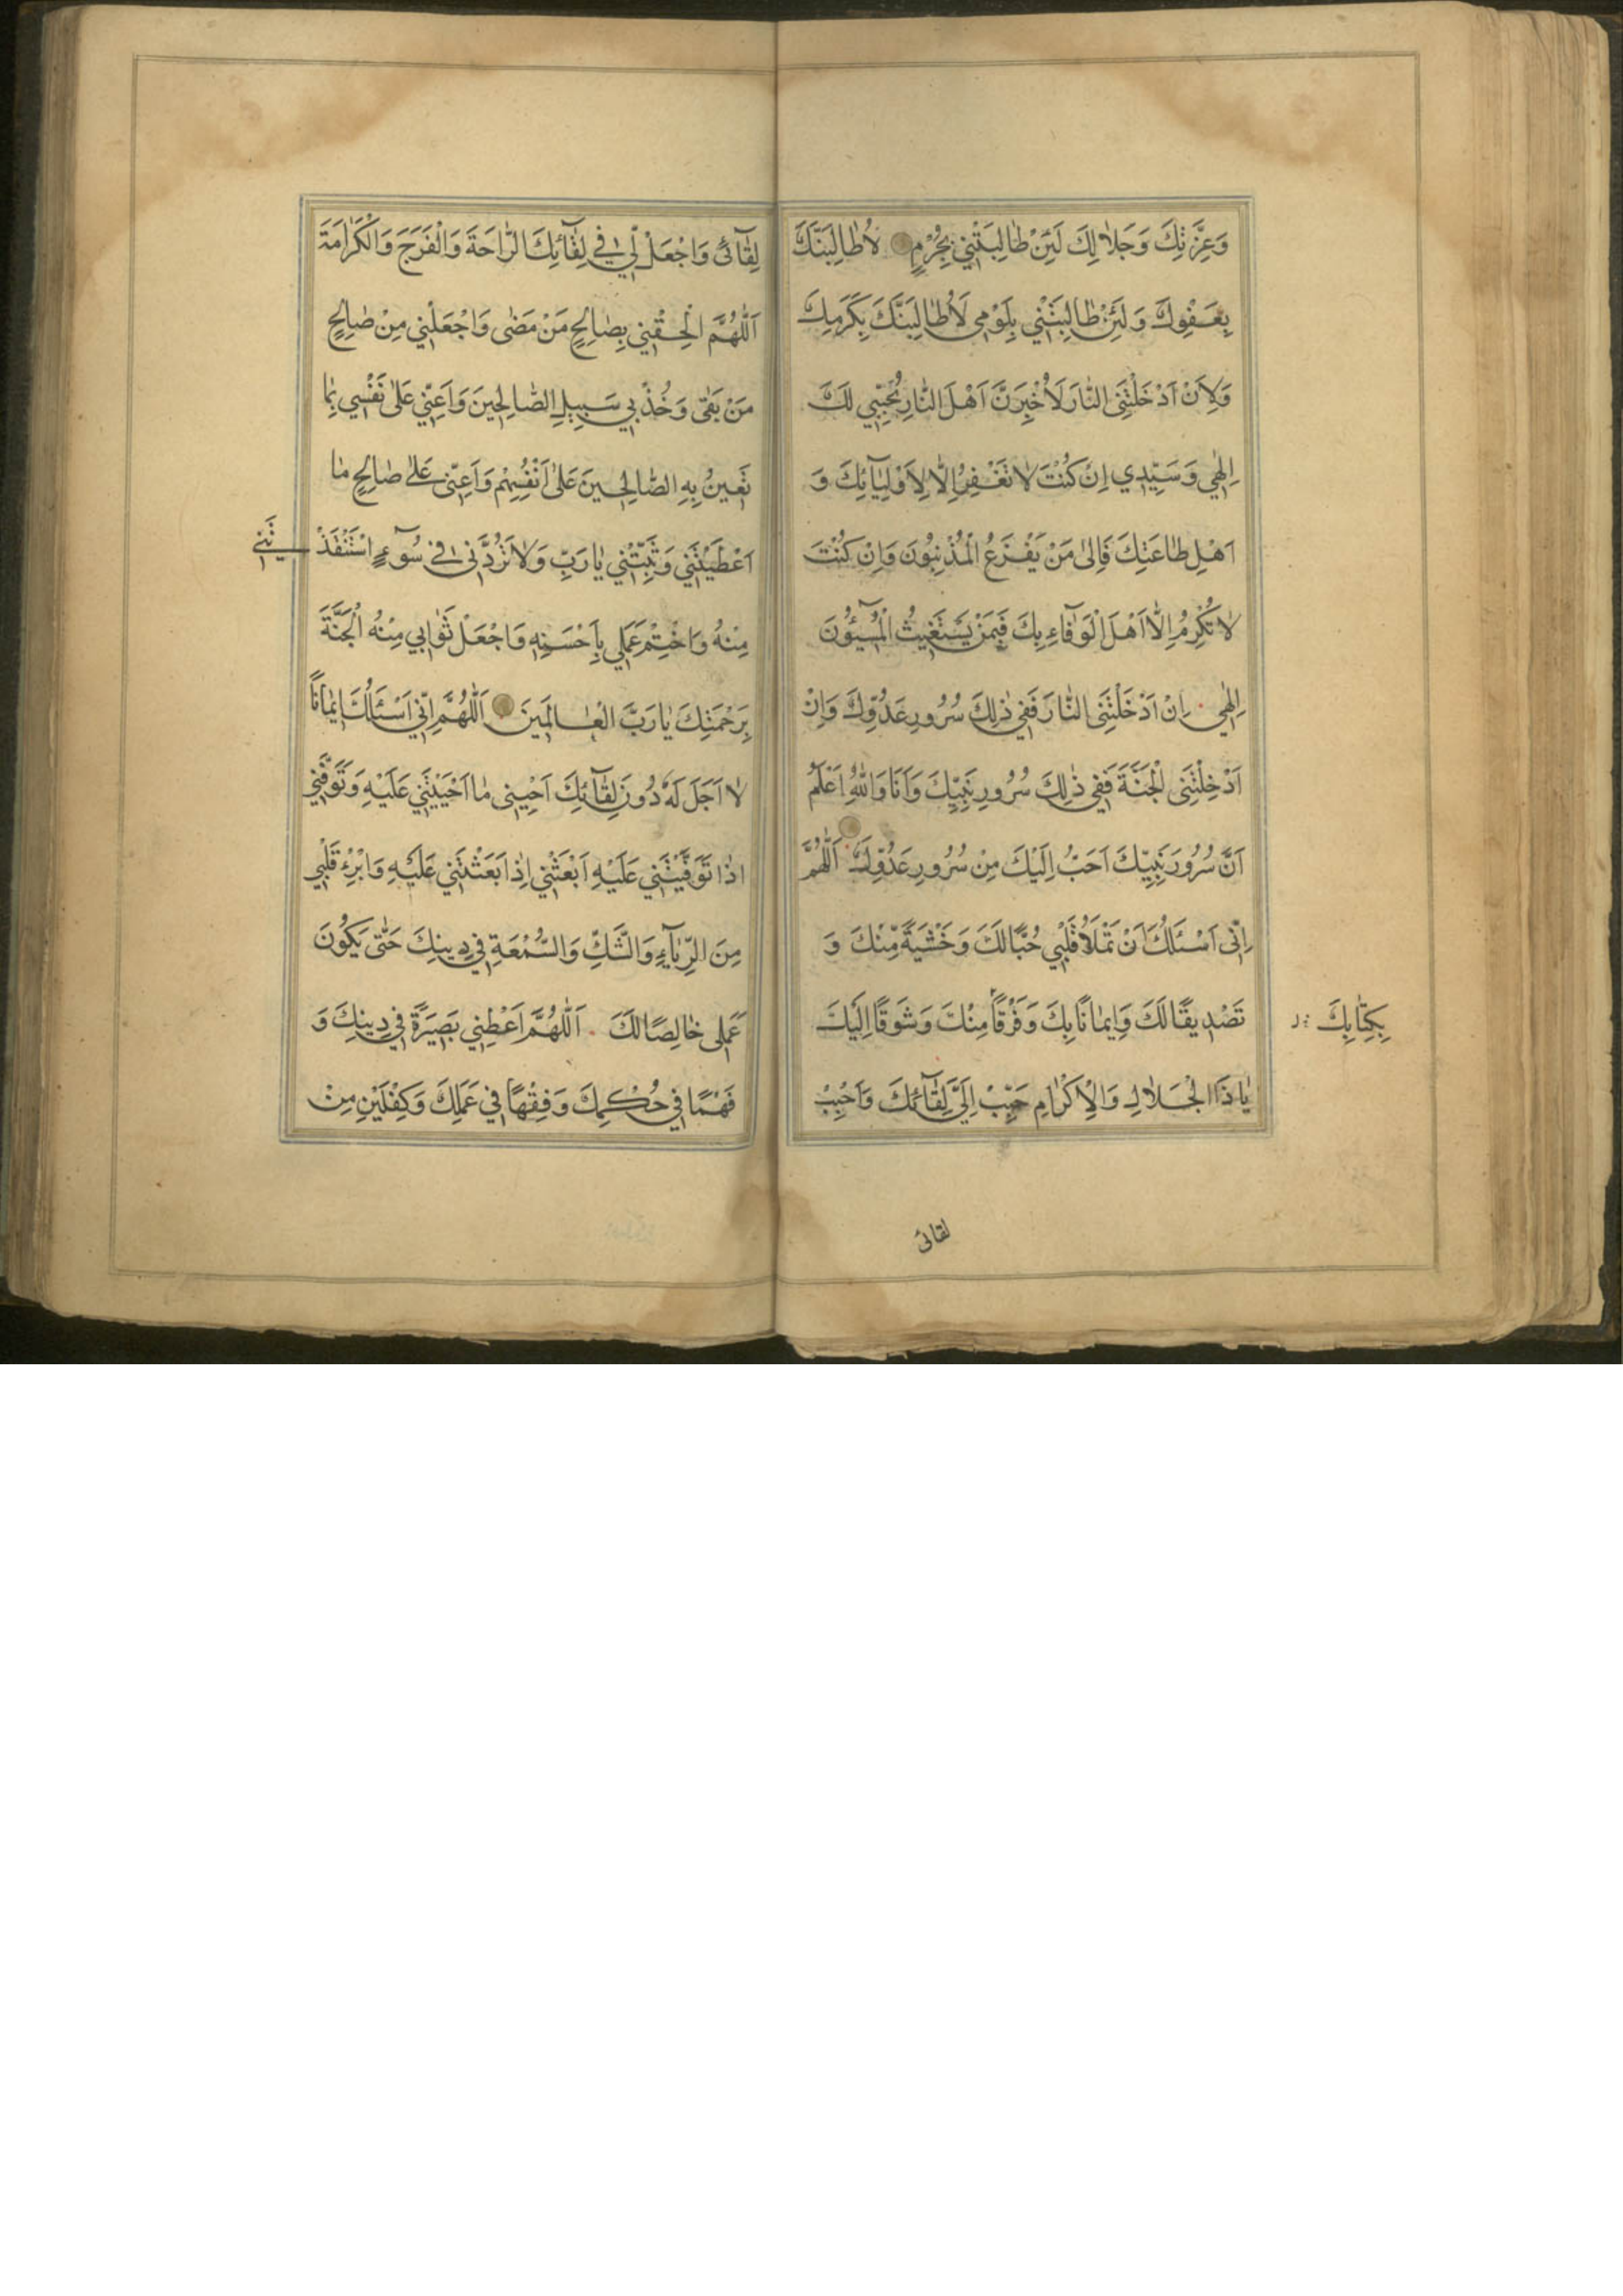 وَعِزَّتِكَ وَجَلٰالِكَ لَئِنْ طٰالِبَتْنِي بِجُرْمٍ لَاُطٰالِبَنَّكَ
بِعَفْوِكَ وَلَئِنْ طٰالِبَتْنِي بِلَوْمِي لَاُطٰالِبَنَّكَ بِكَرَمِكَ
وَلِاَنْ اَدْخَلْتَنِي النّٰارَ لَاُخْبِرَنَّ اَهْلَ النّٰارِ بِحُبِّي لَكَ
اِلٰهِي وَسَيِّدِي اِنْ كُنْتَ لٰا تَغْفِرُ اِلّٰا لِاَوْلِيٰآئِكَ وَ
اَهْلِ طٰاعَتِكَ فَاِلىٰ مَنْ يَفْزَعُ الْمُذْنِبُونَ وَاِنْ كُنْتَ
لٰا تُكْرِمُ اِلّٰا اَهْلَ الْوَفٰآءِ بِكَ فَبِمَنْ يَسْتَغِيثُ الْمُسِيئُونَ
اِلٰهِي اِنْ اَدْخَلْتَنِي النّٰارَ فَفِي ذٰلِكَ سُرُورُ عَدُوِّكَ وَاِنْ
اَدْخَلْتَنِي الْجَنَّةَ فَفِي ذٰلِكَ سُرُورِ نَبِيِّكَ وَاَنَا وَاللهِ اَعْلَمُ
اَنَّ سُرُورَ نَبِيِّكَ اَحَبُّ اِلَيْكَ مِنْ سُرُورِ عَدُوِّكَ اَللّٰهُمَّ
اِنّي اَسْئَلُكَ اَنْ تَمْلَأَ قَلْبِي حُبًّا لَكَ وَخَشْيَةً مِنْكَ وَ
تَصْدِيقًا لَكَ وَاِيمٰانًا بِكَ وَفَرْقًا مِنْكَ وَشَوْقًا اِلَيْكَ
بِكِتٰابِكَ
يٰا ذَا الْجَلٰالِ وَالْاِكْرٰامِ حَبِّبْ اِلَيَّ لِقٰآئَكَ وَاَحْبِبْ
لقائى
لِقٰآئى وَاجْعَلْ لِي فِي لِقٰآئِكَ الرّٰاحَةَ وَالْفَرَجَ وَالْكَرٰامَةَ
اَللّٰهُمَّ اَلْحِقْنِي بِصٰالِحِ مَنْ مَضٰى وَاجْعَلْنِي مِنْ صٰالِحِ
مَنْ بَقٰى وَخُذْ بِي سَبِيلَ الصّٰالِحِينَ وَاَعِنِّي عَلىٰ نَفْسِي بِمٰا
تُعِينُ بِهِ الصّٰالِحِينَ عَلىٰ اَنْفُسِهِمْ وَاَعِنِّي عَلىٰ صٰالِحِ مٰا
اَعْطَيْتَنِي وَثَبِّتْنِي يٰا رَبِّ وَلٰا تَرُدَّنِي فِي سُوٓءٍ اسْتَنْقَذْ تَنِي
مِنْهُ وَاخْتِمْ عَمَلِي بِاَحْسَنِهِ وَاجْعَلْ ثَوٰابِي مِنْهُ الْجَنَّةَ
بِرَحْمَتِكَ يٰا رَبَّ الْعٰالَمِينَ اَللّٰهُمَّ اِنِّي اَسْئَلُكَ اِيمٰانًا
لٰا اَجَلَ لَهُ دُونَ لِقٰآئِكَ اَحْيِنِي مٰا اَحْيَيْتَنِي عَلَيْهِ وَتَوَفَّنِي
اِذٰا تَوَفَّيْتَنِي عَلَيْهِ اَبْعَثْنِي اِذٰا بَعَثْتَنِي عَلَيْهِ وَابْرِءْ قَلْبِي
مِنَ الرِّيٰآءِ وَالشَّكِّ وَالسُّمْعَةِ فِي دِينِكَ حَتّٰى يَكُونَ
عَمَلِي خٰالِصًا لَكَ اَللّٰهُمَّ اَعْطِنِي بَصِيرَةً فِي دِينِكَ وَ
فَهْمًا فِي حُكْمِكَ وَفِقْهًا فِي عَمَلِكَ وَكِفْلَيْنِ مِنْ